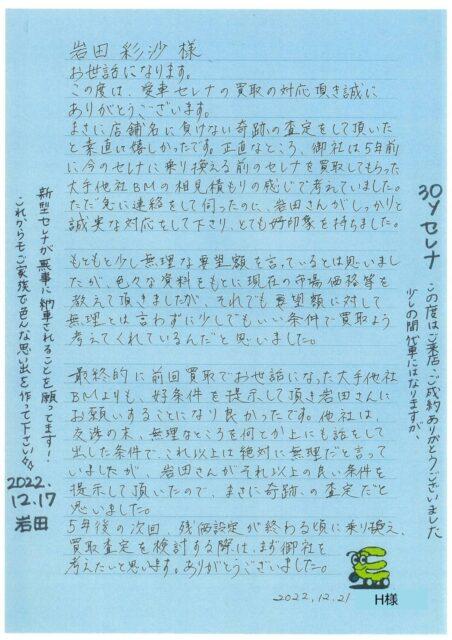 岩田 彩沙 様
お世話になります。
この度は、愛車セレナの買取の対応頂き誠に
ありがとうございます。
まさに店舗名に負けない奇跡の査定をして頂いた
と素直に嬉しかったです。正直なところ、御社は5年前
に今のセレナに乗り換える前のセレナを買取してもらった
大手他社BMの相見積もりの感じで考えていました。
ただ急に連絡をして伺ったのに、岩田さんがしっかりと
誠実な対応をして下さり、とても好印象を持ちました。
もともと少し無理な要望額を言っているとは思いまし
たが、色々な資料をもとに現在の市場価格等を
教えて頂きましたが、それでも要望額に対して
無理とは言わずに少しでもいい条件で買取よう
考えてくれているんだと思いました。
最終的に前回買取でお世話になった大手他社
BMよりも、好条件を提示して頂き岩田さんに
お願いすることになり良かったです。他社は、
交渉の末、無理なところを何とか上にも話をして
出した条件で、これ以上は絶対に無理だと言って
いましたが、岩田さんがそれ以上の良い条件を
提示して頂いたので、まさに奇跡の査定だと
思いました。
5年後の次回、残価設定が終わる頃に乗り換え、
買取査定を検討する際は、まず御社を
考えたいと思います。ありがとうございました。
2022.12.21
H様
30y セレナ
この度はご来店・ご成約ありがとうございました
少しの間代車にはなりますが、
新型セレナが無事に納車されることを願ってます!
これからもご家族で色んな思い出を作って下さい
2022.
12.17
岩田